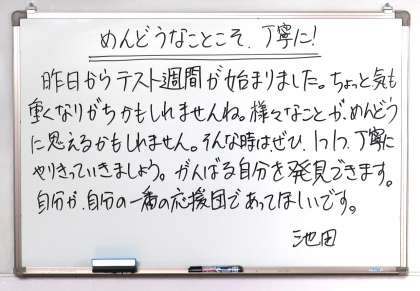 めんどうなことこそ、丁寧に!
昨日からテスト週間が始まりました。ちょっと気も
重くなりがちかもしれませんね。様々なことが、めんどう
に思えるかもしれません。そんな時はぜひ、1つ1つ、丁寧に
やりきっていきましょう。がんばる自分を発見できます。
自分が、自分の一番の応援団であってほしいです。
池田